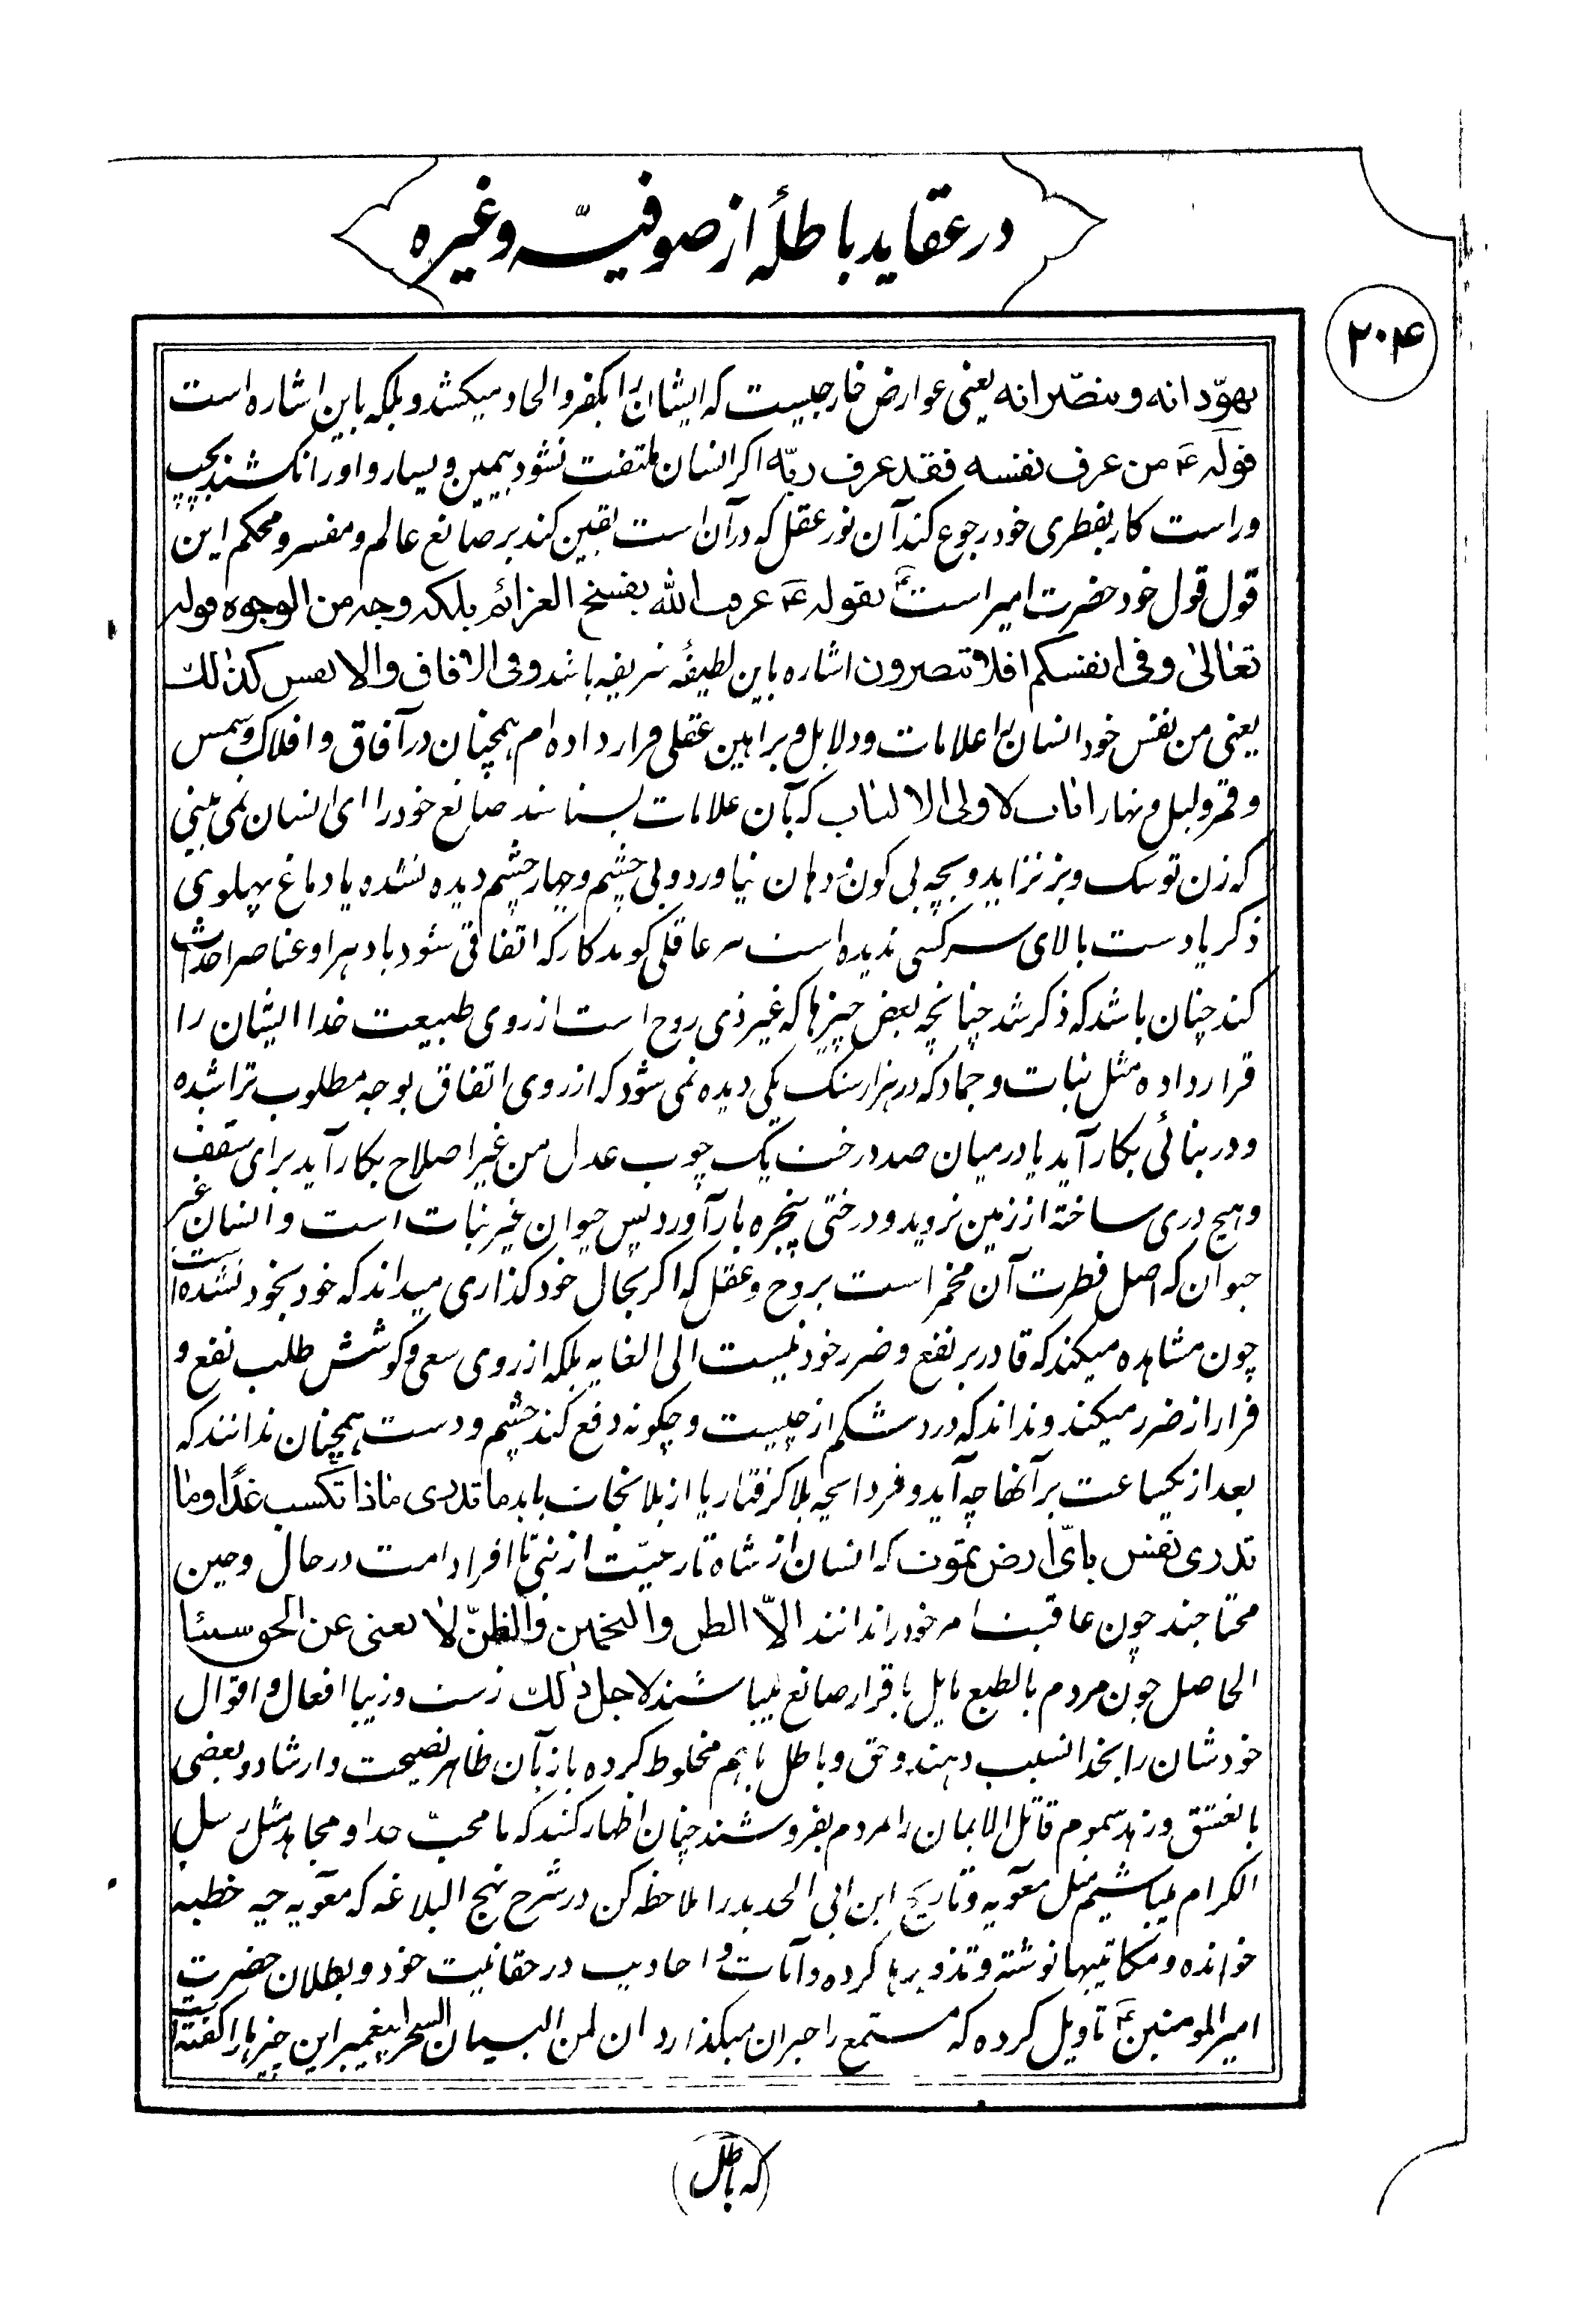 در عقاید باطله از صوفیّه و غیره
۲۰۴
یهوّدانه و ینصّرانه یعنی عوارض خارجیست که ایشان را بکفر و الحاد میکشد و بلکه باین اشاره است
قوله ع من عرف نفسه فقد عرف ربّه اکر انسان ملتفت نشود بیمین و یسار و او را نکشند بچپ
و راست کار بفطری خود رجوع کند آن نور عقل که در آن است یقین کند بر صانع عالم و مفسر و محکم این
قول قول خود حضرت امیر است ع بقوله ع عرف الله بفسخ العزائم بلکه وجه من الوجوه قوله
تعالیٰ و فی انفسکم افلا تبصرون اشاره باین لطیفهٔ شریفه باشد و فی الافاق و الانفس کذٰلک
یعنی من نفس خود انسان را علامات و دلایل و براهین عقلی قرار داده ام همچنان در آفاق و افلاک و شمس
و قمر و لیل و نهار ایات لاولی الالباب که بآن علامات بشناسند صانع خود را ای انسان نمی بینی
که زن تو سک و بز نزاید و بچه بی کون و دهان نیاورد و بی چشم و چهار چشم دیده نشده یا دماغ پهلوی
ذکر یا دست بالای سر کسی ندیده است عاقلی کوید کار که اتفاقی شود یا دهر او عناصر احداث
کند چنان باشد که ذکر شد چنانچه بعض چیزها که غیر ذی روح است از روی طبیعت خدا ایشان را
قرار داده مثل نبات و جماد که در هزار سنک یکی دیده نمی شود که از روی اتفاق بوجه مطلوب تراشیده
و در بنائی بکار آید یا در میان صد درخت یک چوب عدل من غیر اصلاح بکار آید برای سقف
و هیچ دری ساخته از زمین نروید و درختی پنجره بار آورد پس حیوان غیر نبات است و انسان غیر
حیوان که اصل فطرت آن مخمر است بروح و عقل که اکر بحال خود کذاری میداند که خود بخود نشده است
چون مشاهده میکند که قادر بر نفع و ضرر خود نیست الی الغایه بلکه از روی سعی و کوشش طلب نفع و
فرار از ضرر میکند و نداند که درد شکم از چیست و چکونه دفع کند چشم و دست همچنان ندانند که
بعد از یکساعت بر آنها چه آید و فردا بچه بلا کرفتار یا از بلا نجات یابد ما تدری ماذا تکسب غدًا و ما
تدری نفس بایّ ارض تموت که انسان از شاه تا رعیّت از نبی تا افراد امت در حال و حین
محتاجند چون عاقبت امر خود را ندانند الاّ الظن و التخمین و الظنّ لا یغنی عن الحق شیئا
الحاصل چون مردم بالطبع مایل باقرار صانع میباشند لاجل ذٰلک زشت و زیبا افعال و اقوال
خودشان را بخدا نسبت دهند و حق و باطل باهم مخلوط کرده با زبان ظاهر نصیحت و ارشاد و بعضی
با تعشق و زهد سموم قاتل الایمان را بمردم بفروشند چنان اظهار کنند که ما محبّ خدا و مجاهد مثل رسل
الکرام میباشیم مثل معویه و تاریخ ابن ابی الحدید را ملاحظه کن در شرح نهج البلاغه که معویه چه خطبه
خوانده و مکاتیبها نوشته و تذویرها کرده و آیات و احادیث در حقانیت خود و بطلان حضرت
امیرالمومنین ع تاویل کرده که مستمع را حیران میکذارد ان لمن البیان السحرا پیغمبر این چیزها را کفته است
(که باطل)